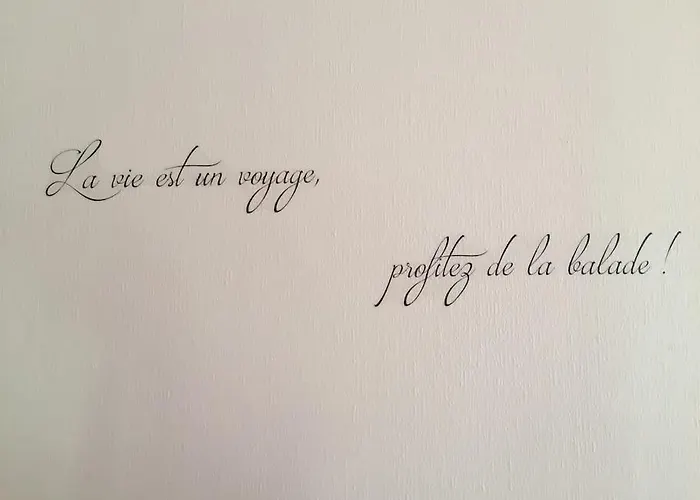 La vie est un voyage,
profitez de la balade !